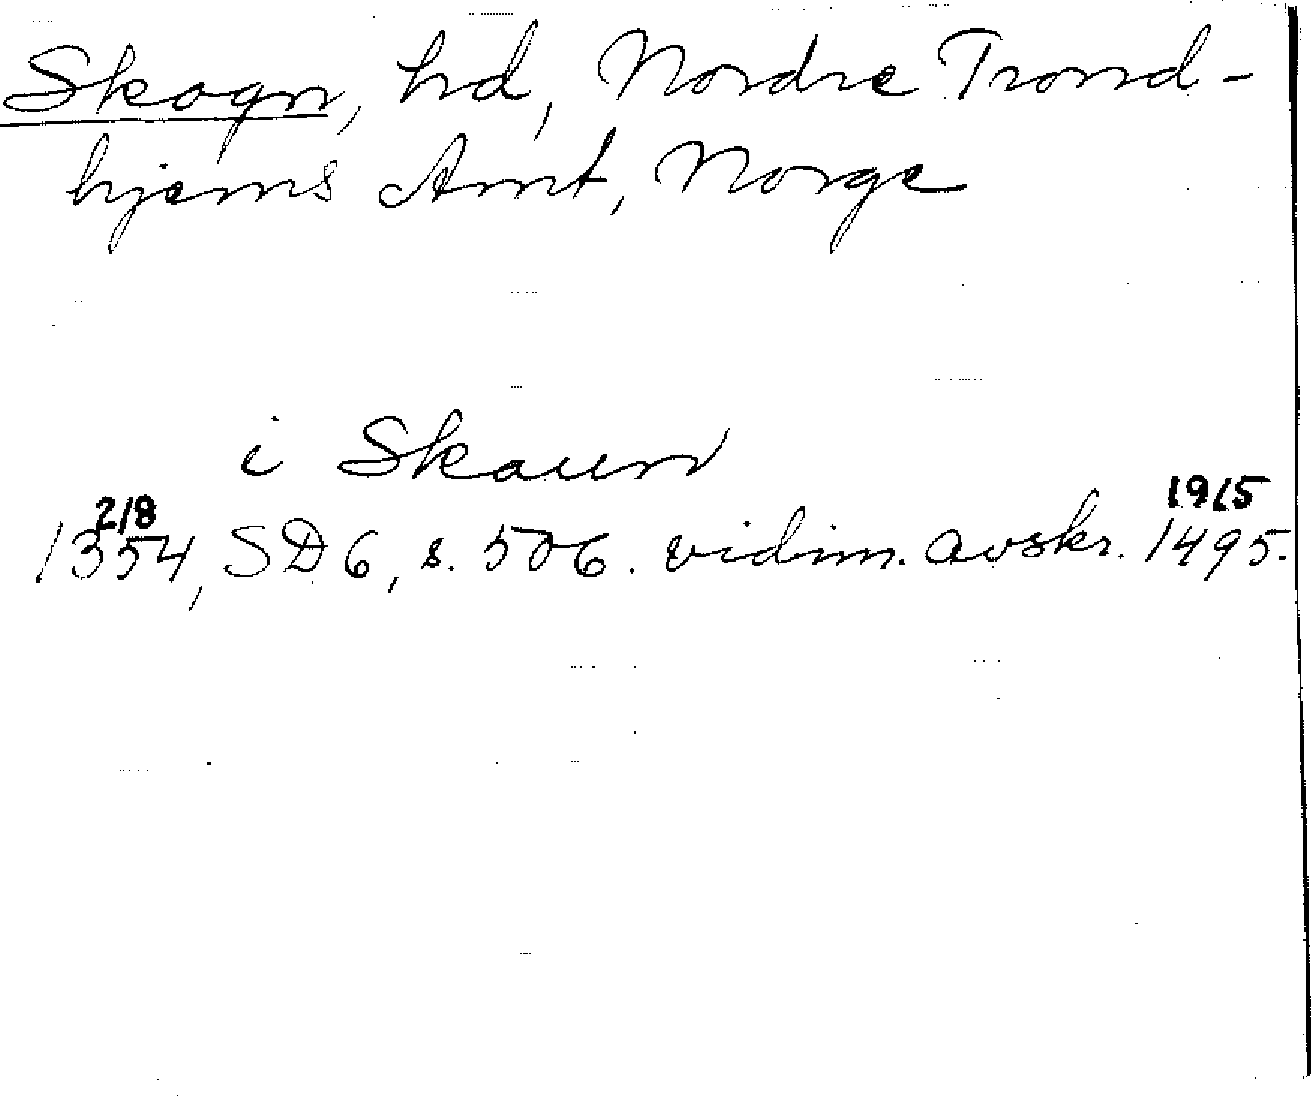 Skogn, hd, Nordre Trond-
hjems Amt, Norge
i Skaun
2/8 19/5
1354, SD 6, s. 506. vidim. avskr. 1495.